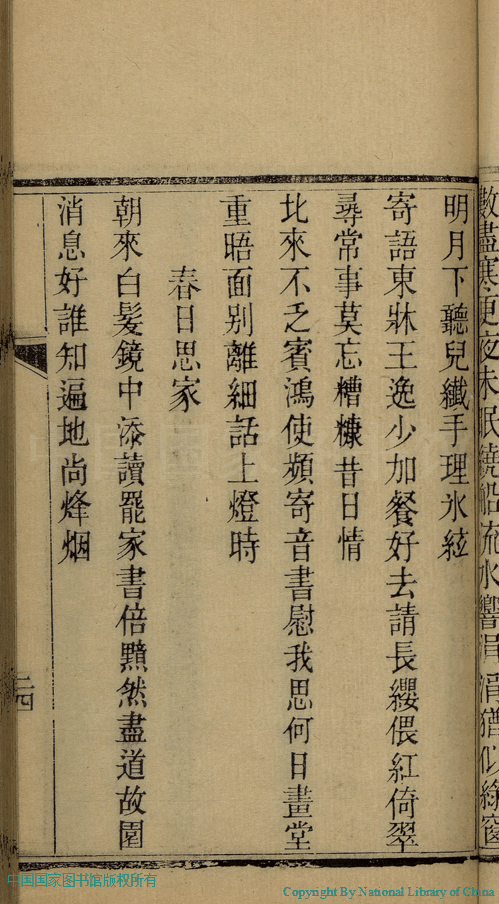 數盡寒更夜未眠繞船流水響涓涓猶似綠窗
明月下聽兒纖手理氷絃
寄語東牀王逸少加餐好去請長纓偎紅倚翠
尋常事莫忘糟糠昔日情
比來不乏賓鴻使頻寄音書慰我思何日畫堂
重晤面別離細話上燈時
春日思家
朝來白髮鏡中添讀罷家書倍黯然盡道故園
消息好誰知遍地尚烽烟
二四
中国国家图书馆版权所有
Copyright By National Library of China